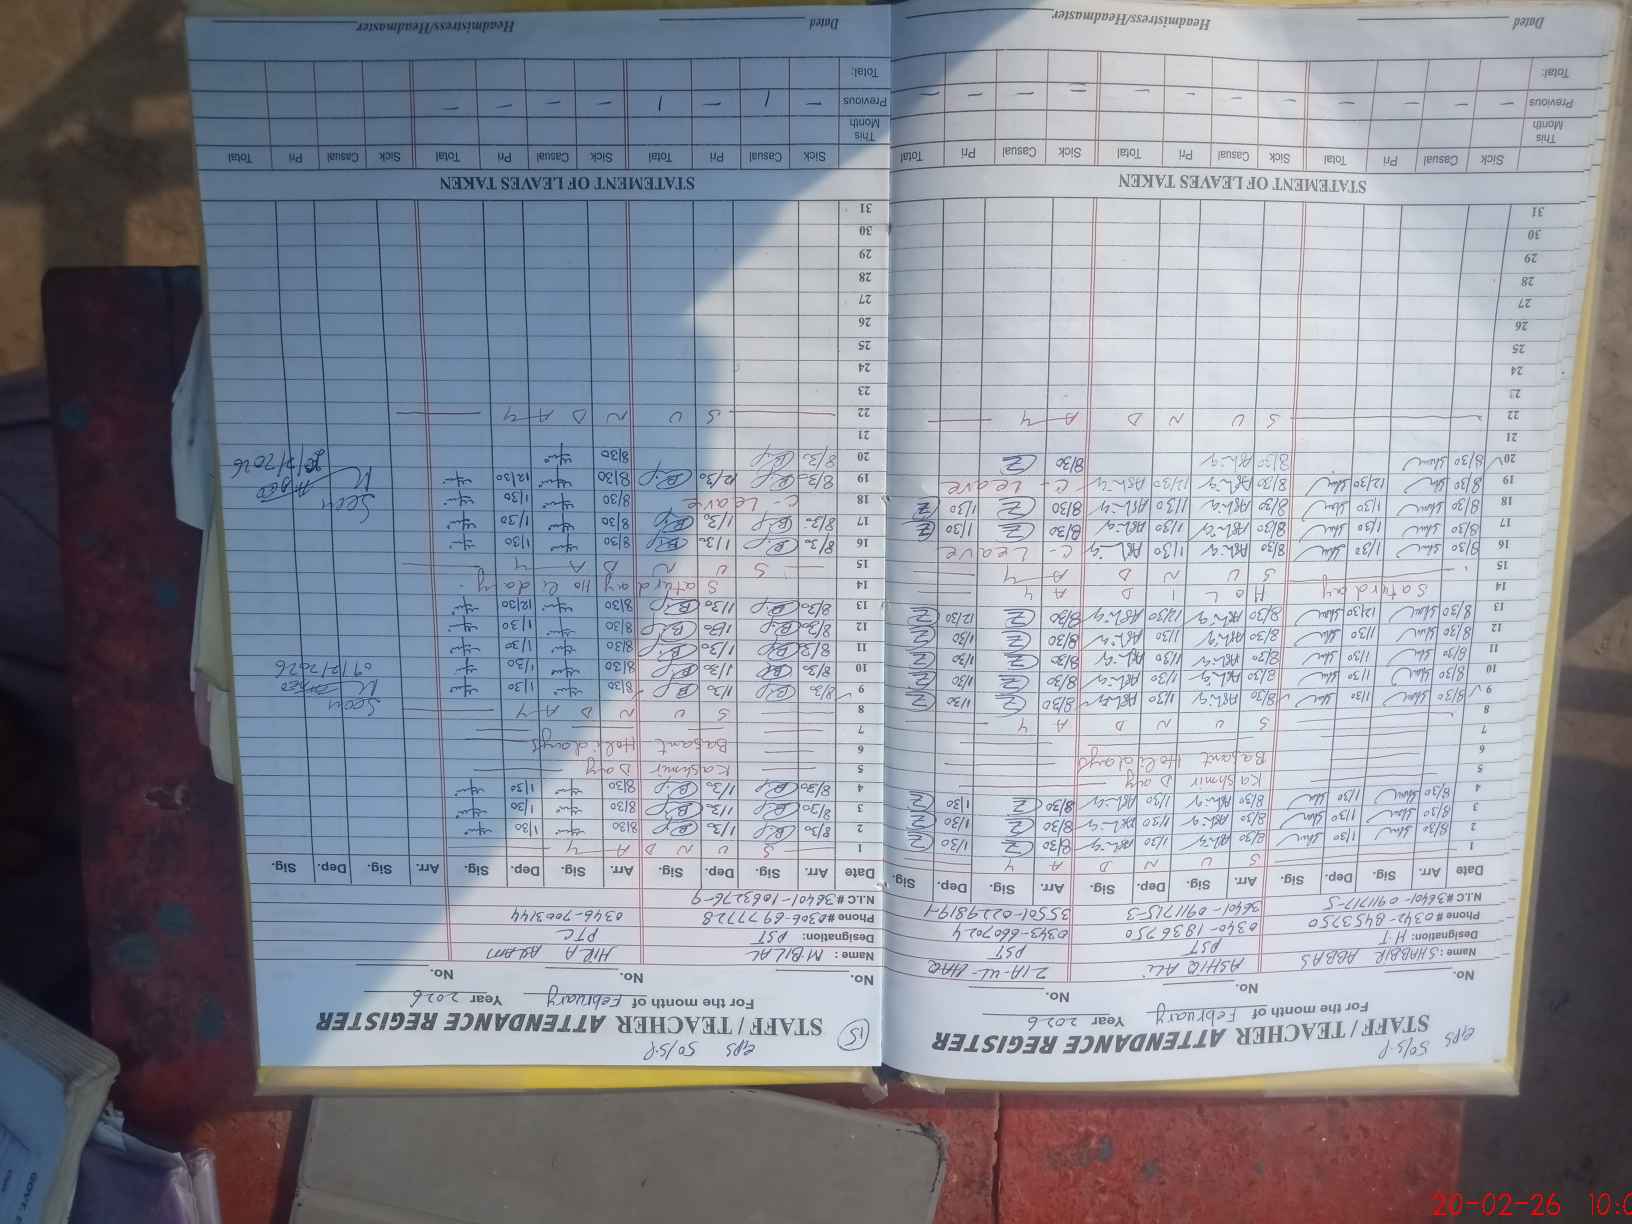 GPS 50/S.P
STAFF / TEACHER ATTENDANCE REGISTER
For the month of February Year 2026
No. No. No.
Name: SHABBIR ABBAS ASHIQ ALI ZIA-UL-HAQ
Designation: HT PST PST
Phone # 0342-8453750 0340-1836750 0343-6607024
N.I.C # 36401-0911717-5 36401-0911715-3 35501-0229819-1
Date Arr. Sig. Dep. Sig. Arr. Sig. Dep. Sig. Arr. Sig. Dep. Sig.
1 S U N D A Y
2 8/30 1/30 8/30 1/30 8/30 1/30
3 8/30 1/30 8/30 1/30 8/30 1/30
4 8/30 1/30 8/30 1/30 8/30 1/30
5 Kashmir Day
6 Basant Holidays
7
8 S U N D A Y
9 8/30 1/30 8/30 1/30 8/30 1/30
10 8/30 1/30 8/30 1/30 8/30 1/30
11 8/30 1/30 8/30 1/30 8/30 1/30
12 8/30 1/30 8/30 1/30 8/30 1/30
13 8/30 12/30 8/30 12/30 8/30 12/30
14 Saturday H O L I D A Y
15 S U N D A Y
16 8/30 1/30 8/30 1/30 C- Leave
17 8/30 1/30 8/30 1/30 8/30 1/30
18 8/30 1/30 8/30 1/30 8/30 1/30
19 8/30 12/30 8/30 12/30 C- Leave
20 8/30 8/30 8/30
21
22 S U N D A Y
23
24
25
26
27
28
29
30
31
STATEMENT OF LEAVES TAKEN
Sick Casual Pri Total Sick Casual Pri Total Sick Casual Pri Total
This Month
Previous – – – – – – – – – – – –
Total:
Dated Headmistress/Headmaster
15
GPS 50/S.P
STAFF / TEACHER ATTENDANCE REGISTER
For the month of February Year 2026
No. No. No.
Name: M BILAL HIRA ASLAM
Designation: PST PTC
Phone # 0306-6977728 0346-7003144
N.I.C # 36401-1063276-9
Date Arr. Sig. Dep. Sig. Arr. Sig. Dep. Sig. Arr. Sig. Dep. Sig.
1 S U N D A Y
2 8/30 1/30 8/30 1/30
3 8/30 1/30 8/30 1/30
4 8/30 1/30 8/30 1/30
5 Kashmir Day
6 Basant Holidays
7
8 S U N D A Y Seen
9 8/30 1/30 8/30 1/30
10 8/30 1/30 8/30 1/30 09/2/2026
11 8/30 1/30 8/30 1/30
12 8/30 1/30 8/30 1/30
13 8/30 1/30 8/30 12/30
14 Saturday Holiday
15 S U N D A Y
16 8/30 1/30 8/30 1/30
17 8/30 1/30 8/30 1/30
18 C- Leave 8/30 1/30 Seen
19 8/30 12/30 8/30 12/30
20 8/30 8/30 20/2/2026
21
22 S U N D A Y
23
24
25
26
27
28
29
30
31
STATEMENT OF LEAVES TAKEN
Sick Casual Pri Total Sick Casual Pri Total Sick Casual Pri Total
This Month
Previous – 1 – 1 – – – –
Total:
Dated Headmistress/Headmaster
20-02-26 10:0